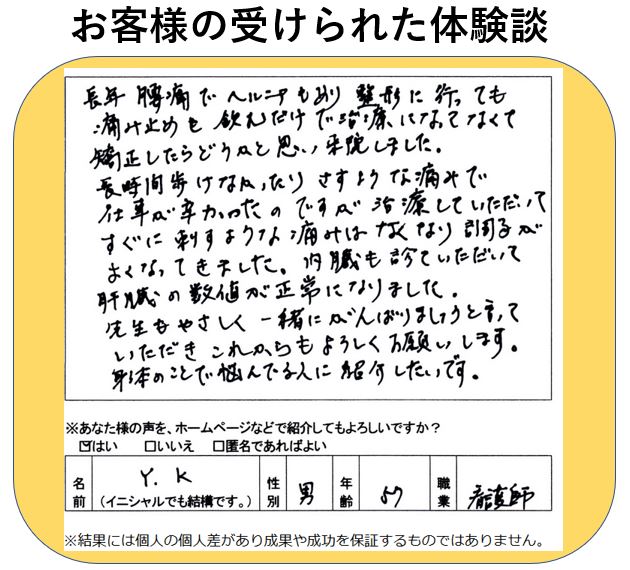 お客様の受けられた体験談
長年 腰痛で ヘルニアもあり 整形に 行っても
痛み止めを 飲んだけで治療になってなくて
矯正したらどうかと思い 来院しました。
長時間歩けなかったり さすような痛みで
仕事が辛かったのですが 治療していただいて
すぐに 刺すような痛みはなくなり 調子が
よくなってきました。内臓も診ていただいて
肝臓の数値が正常になりました。
先生もやさしく 一緒にがんばりましょうと言って
いただき これからも よろしくお願いします。
身体のことで悩んでる人に 紹介したいです。
※あなた様の声を、ホームページなどで紹介してもよろしいですか？
☑はい □いいえ □匿名であればよい
名前 Y.K (イニシャルでも結構です。) 性別 男 年齢 57 職業 看護師
※結果には個人の個人差があり成果や成功を保証するものではありません。